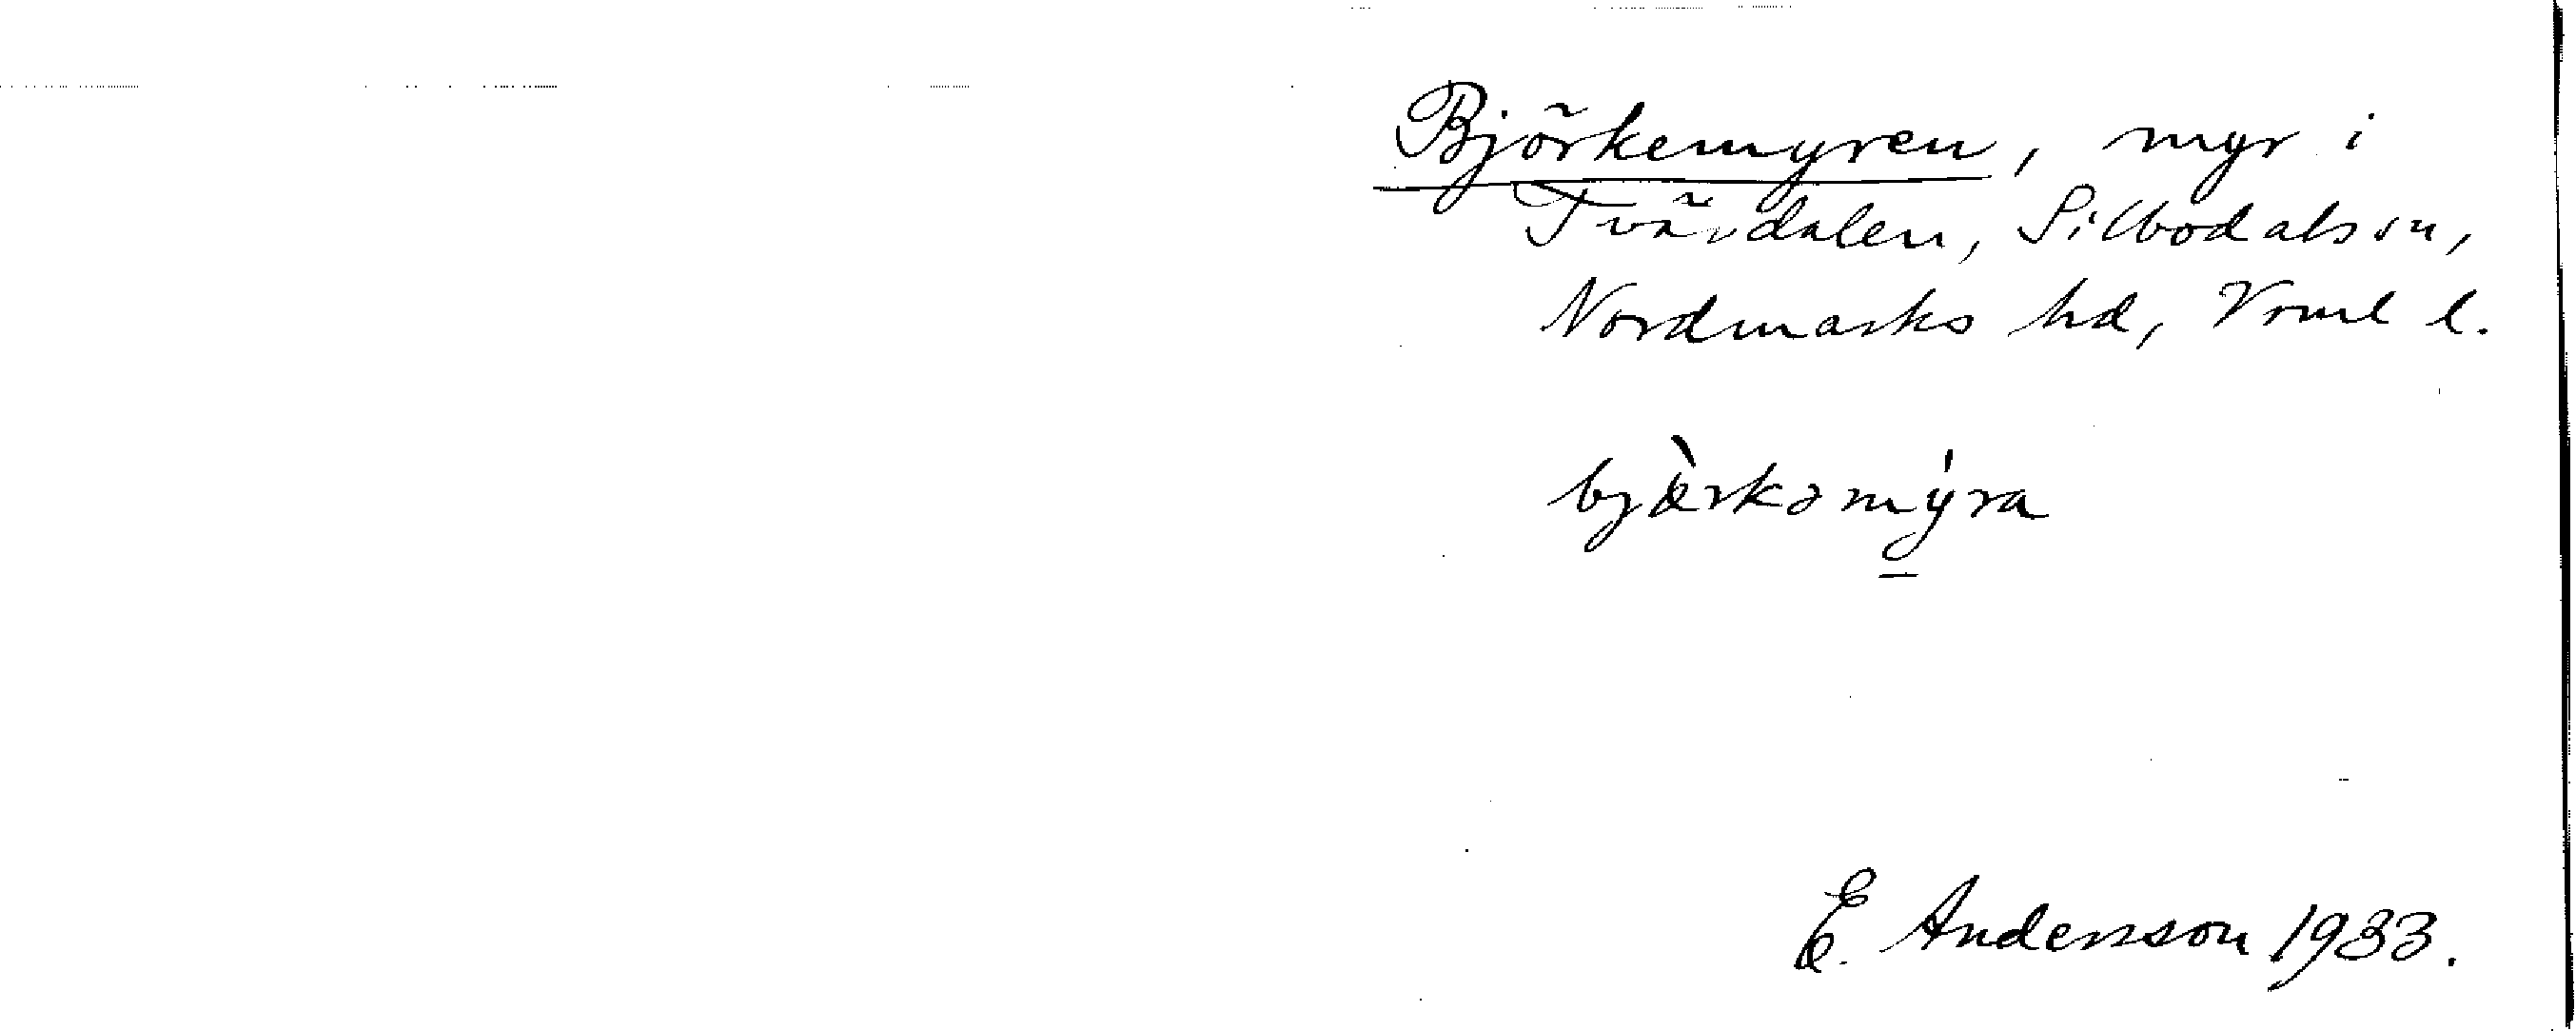 Björkemyren, myr i
Tvärdalen, Silbodals sn,
Nordmarks hd, Vrml l.
bjèrkəmýra
E. Andersson 1933.